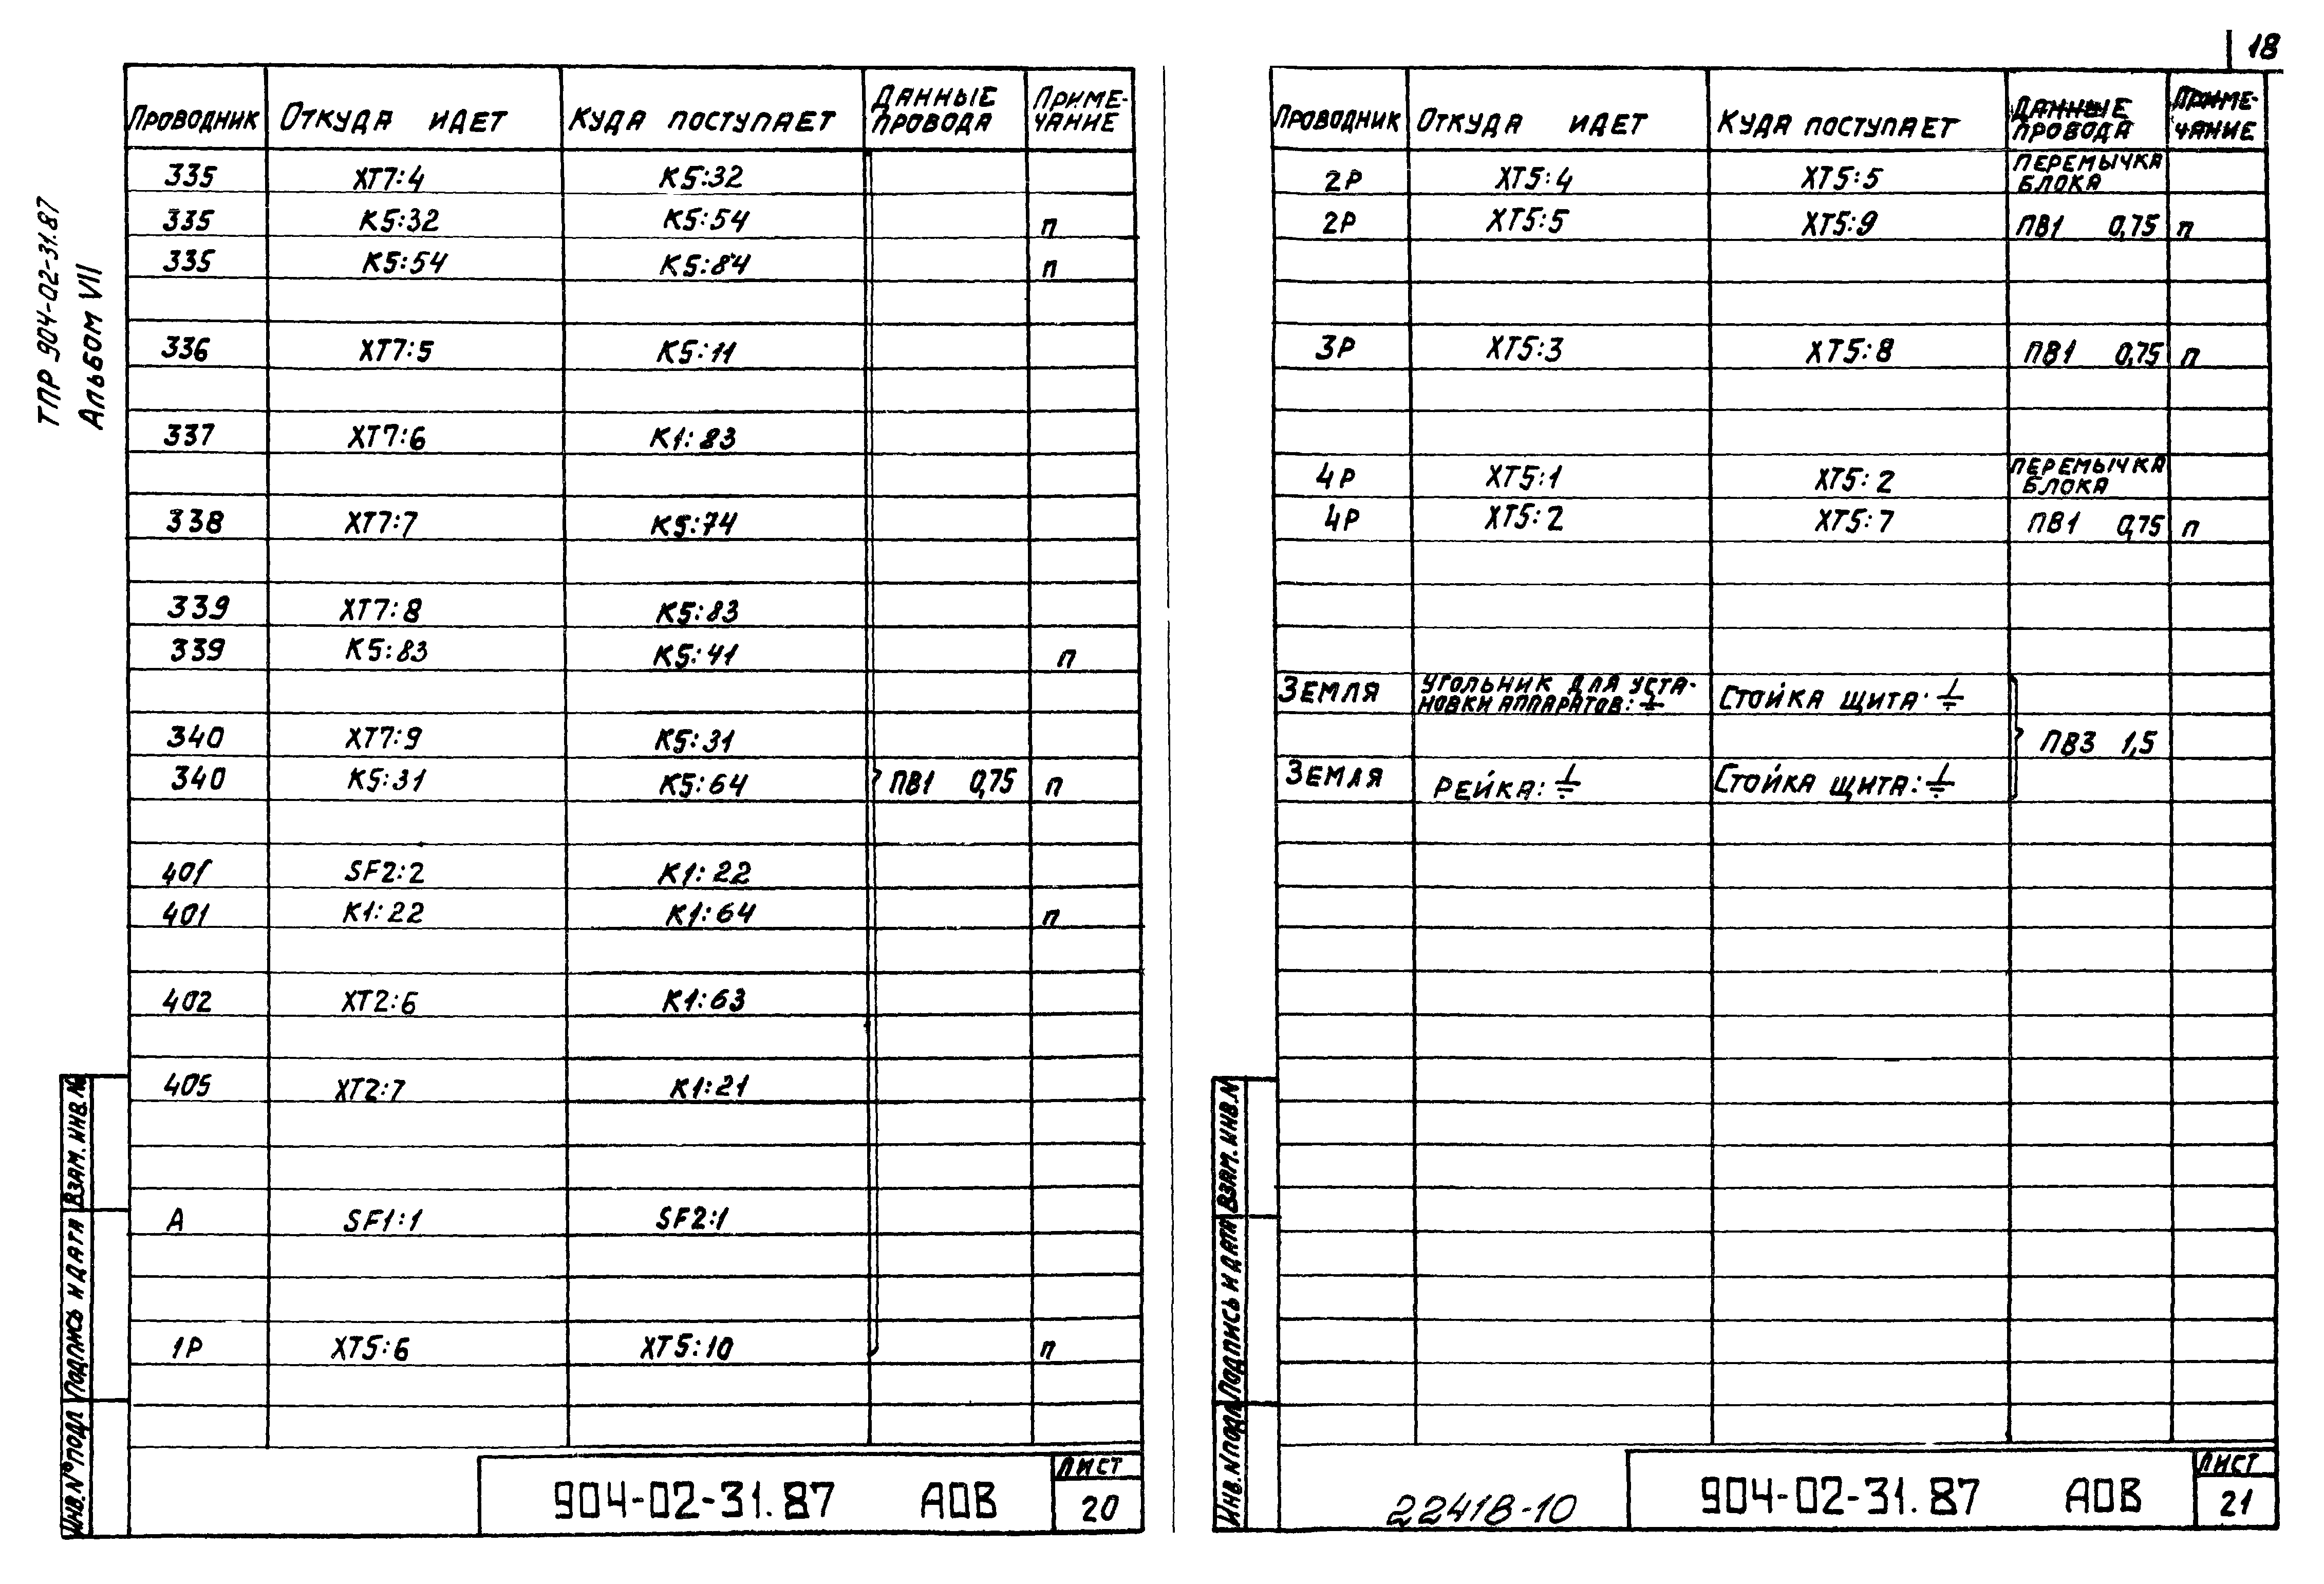 18
ТПР 904-02-31.87
Альбом VII
Проводник Откуда идет Куда поступает Данные провода Примечание
335 ХТ7:4 К5:32
335 К5:32 К5:54 п
335 К5:54 К5:84 п
336 ХТ7:5 К5:11
337 ХТ7:6 К1:83
338 ХТ7:7 К5:74
339 ХТ7:8 К5:83
339 К5:83 К5:41 п
340 ХТ7:9 К5:31
340 К5:31 К5:64 ПВ1 0,75 п
401 SF2:2 К1:22
401 К1:22 К1:64 п
402 ХТ2:6 К1:63
405 ХТ2:7 К1:21
А SF1:1 SF2:1
1Р ХТ5:6 ХТ5:10 п
Взам. инв. №
Подпись и дата
Инв. № подл
904-02-31.87 АОВ
Лист
20
Проводник Откуда идет Куда поступает Данные провода Примечание
2Р ХТ5:4 ХТ5:5 Перемычка блока
2Р ХТ5:5 ХТ5:9 ПВ1 0,75 п
3Р ХТ5:3 ХТ5:8 ПВ1 0,75 п
4Р ХТ5:1 ХТ5:2 Перемычка блока
4Р ХТ5:2 ХТ5:7 ПВ1 0,75 п
Земля Угольник для уста-
новки аппаратов:⏚ Стойка щита:⏚
ПВ3 1,5
Земля Рейка:⏚ Стойка щита:⏚
Взам. инв. N
Подпись и дата
Инв. N подл
22418-10
904-02-31.87 АОВ
Лист
21